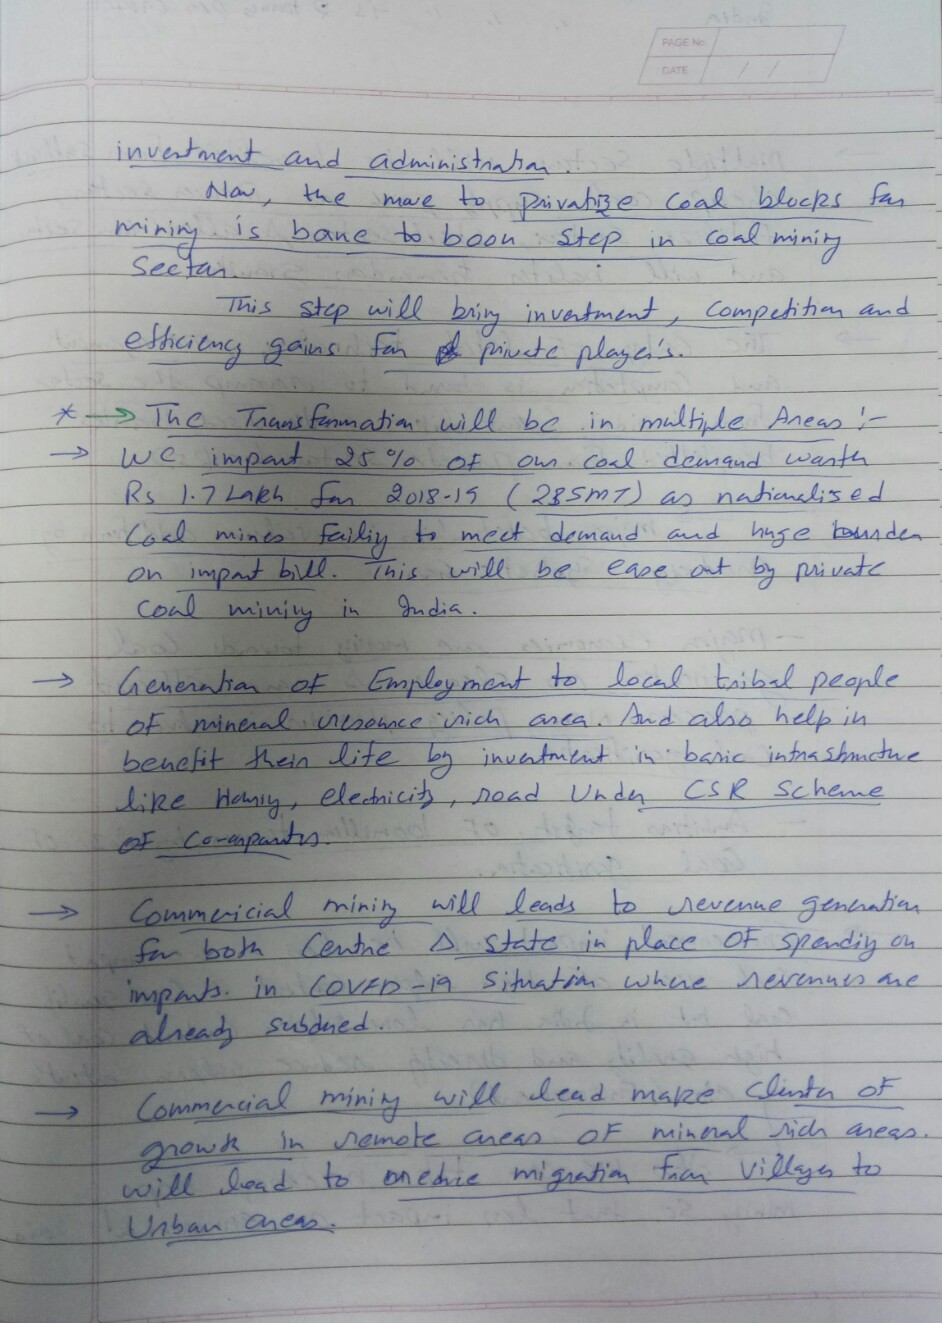 PAGE No.
DATE / /
investment and administration.
Now, the move to privatize coal blocks for
mining is bane to boon step in coal mining
sector.
This step will bring investment, competition and
efficiency gains for private player's.
* → The Transformation will be in multiple Areas :-
→ WE import 25% OF our coal demand worth
Rs 1.7 Lakh for 2018-19 (235MT) as nationalised
Coal mines failing to meet demand and huge burden
on import bill. This will be ease out by private
coal mining in India.
→ Generation OF Employment to local tribal people
OF mineral resource rich area. And also help in
benefit their life by investment in basic infrastructure
like Housing, electricity, road Under CSR Scheme
OF Companies.
→ Commericial mining will leads to revenue generation
for both Centre & state in place OF spending on
imports. in COVID-19 Situation where revenues are
already subdued.
→ Commercial mining will lead make cluster OF
growth in remote areas OF mineral rich areas.
will lead to reduce migration from villages to
Urban areas.